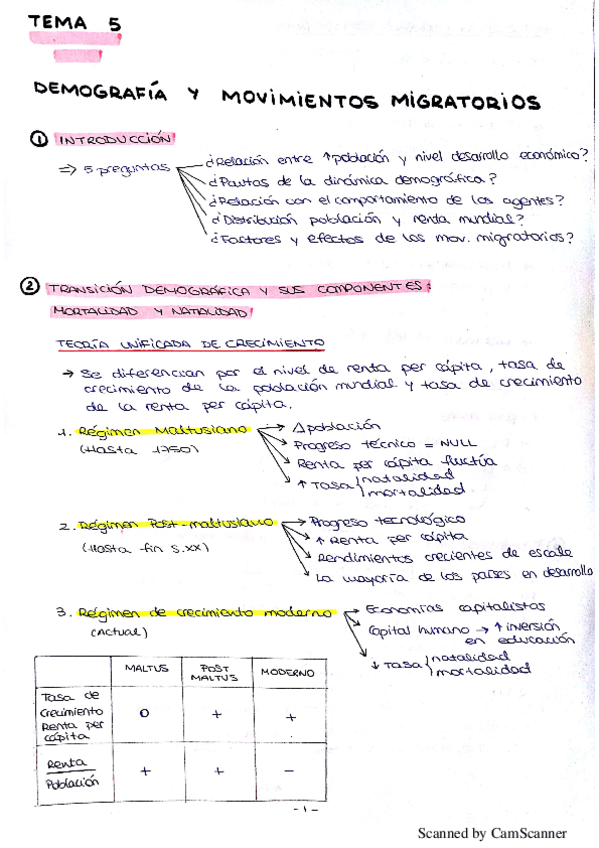 TEMA 5
DEMOGRAFÍA Y MOVIMIENTOS MIGRATORIOS
1 INTRODUCCIÓN
=> 5 preguntas
¿Relación entre ↑población y nivel desarrollo económico?
¿Pautas de la dinámica demográfica?
¿Relación con el comportamiento de los agentes?
¿Distribución población y renta mundial?
¿Factores y efectos de los mov. migratorios?
2 TRANSICIÓN DEMOGRÁFICA Y SUS COMPONENTES:
MORTALIDAD Y NATALIDAD
TEORÍA UNIFICADA DE CRECIMIENTO
→ Se diferencian por el nivel de renta per cápita, tasa de
crecimiento de la población mundial y tasa de crecimiento
de la renta per cápita.
1. Régimen Maltusiano
(Hasta 1750)
→ Δ población
Progreso técnico = NULL
Renta per cápita fluctúa
↑ Tasa { natalidad
mortalidad
2. Régimen Post-maltusiano
(Hasta fin s.XX)
→ Progreso tecnológico
↑ Renta per cápita
Rendimientos crecientes de escala
La mayoría de los países en desarrollo
3. Régimen de crecimiento moderno
(Actual)
→ Economías capitalistas
Capital humano → ↑ inversión
en educación
↓ Tasa { natalidad
mortalidad
MALTUS POST MALTUS MODERNO
Tasa de
Crecimiento
Renta per
cápita
0 + +
Renta
Población
+ + -
-1-
Scanned by CamScanner